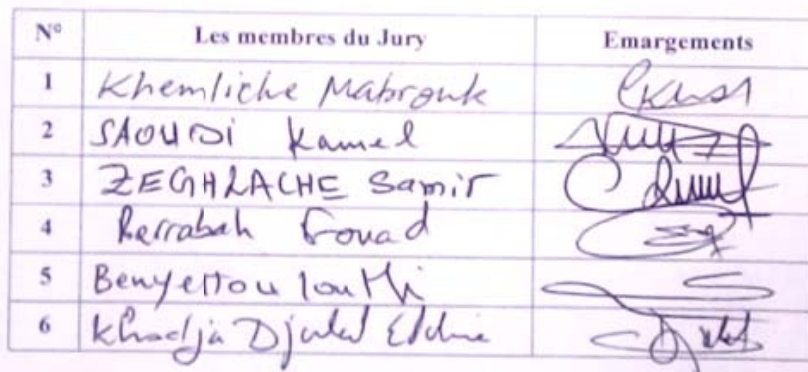 N° Les membres du Jury Emargements
1 Khemliche Mabrouk
2 SAOUDI Kamel
3 ZEGHLACHE Samir
4 Berrabah Fouad
5 Benyettou Louthi
6 Khodja Djalal Eddine